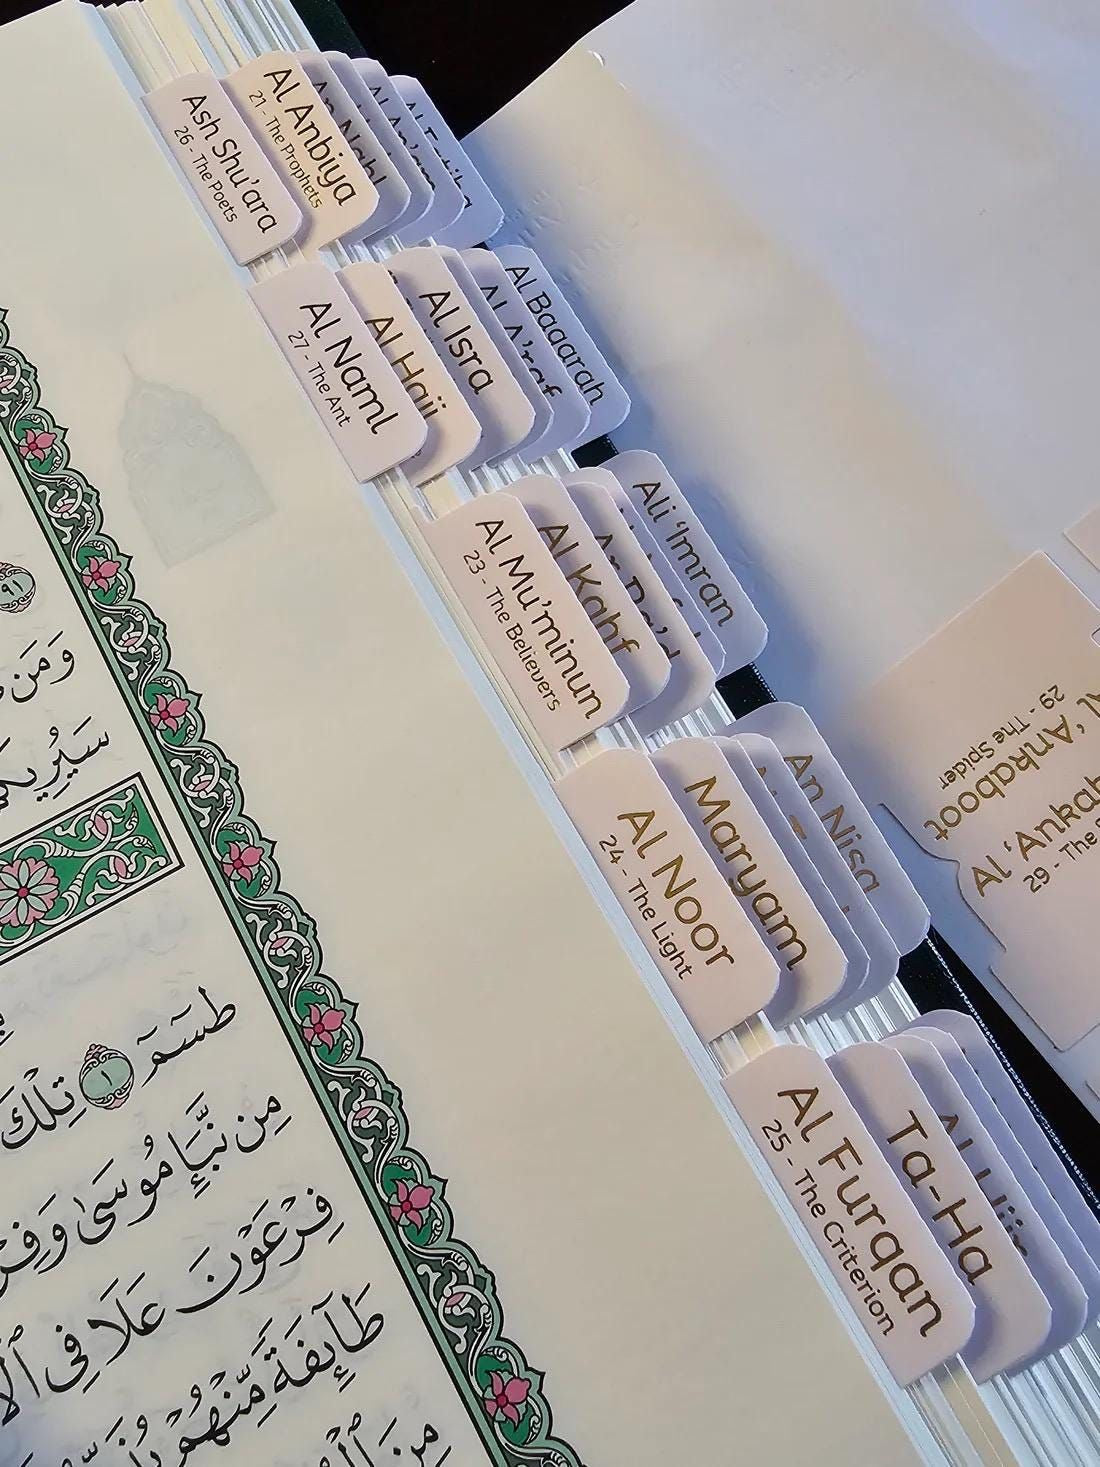 Ash Shu'ara
26 - The Poets
Al Anbiya
21 - The Prophets
Al Naml
27 - The Ant
Al Hajj
Al Isra
Al A'raf
Al Baqarah
Al Mu'minun
23 - The Believers
Al Kahf
Ali 'Imran
Al Noor
24 - The Light
Maryam
An Nisa
Al Furqan
25 - The Criterion
Ta-Ha
Al 'Ankaboot
29 - The Spider
Al 'Ankab
29 - The S
٩١
وَمَن
سَيُرِيكُمْ
طسٓمٓ ١ تِلْكَ
مِن نَّبَإِ مُوسَىٰ وَفِرْ
فِرْعَوْنَ عَلَا فِى ٱلْأ
طَآئِفَةً مِّنْهُمْ
مِنَ